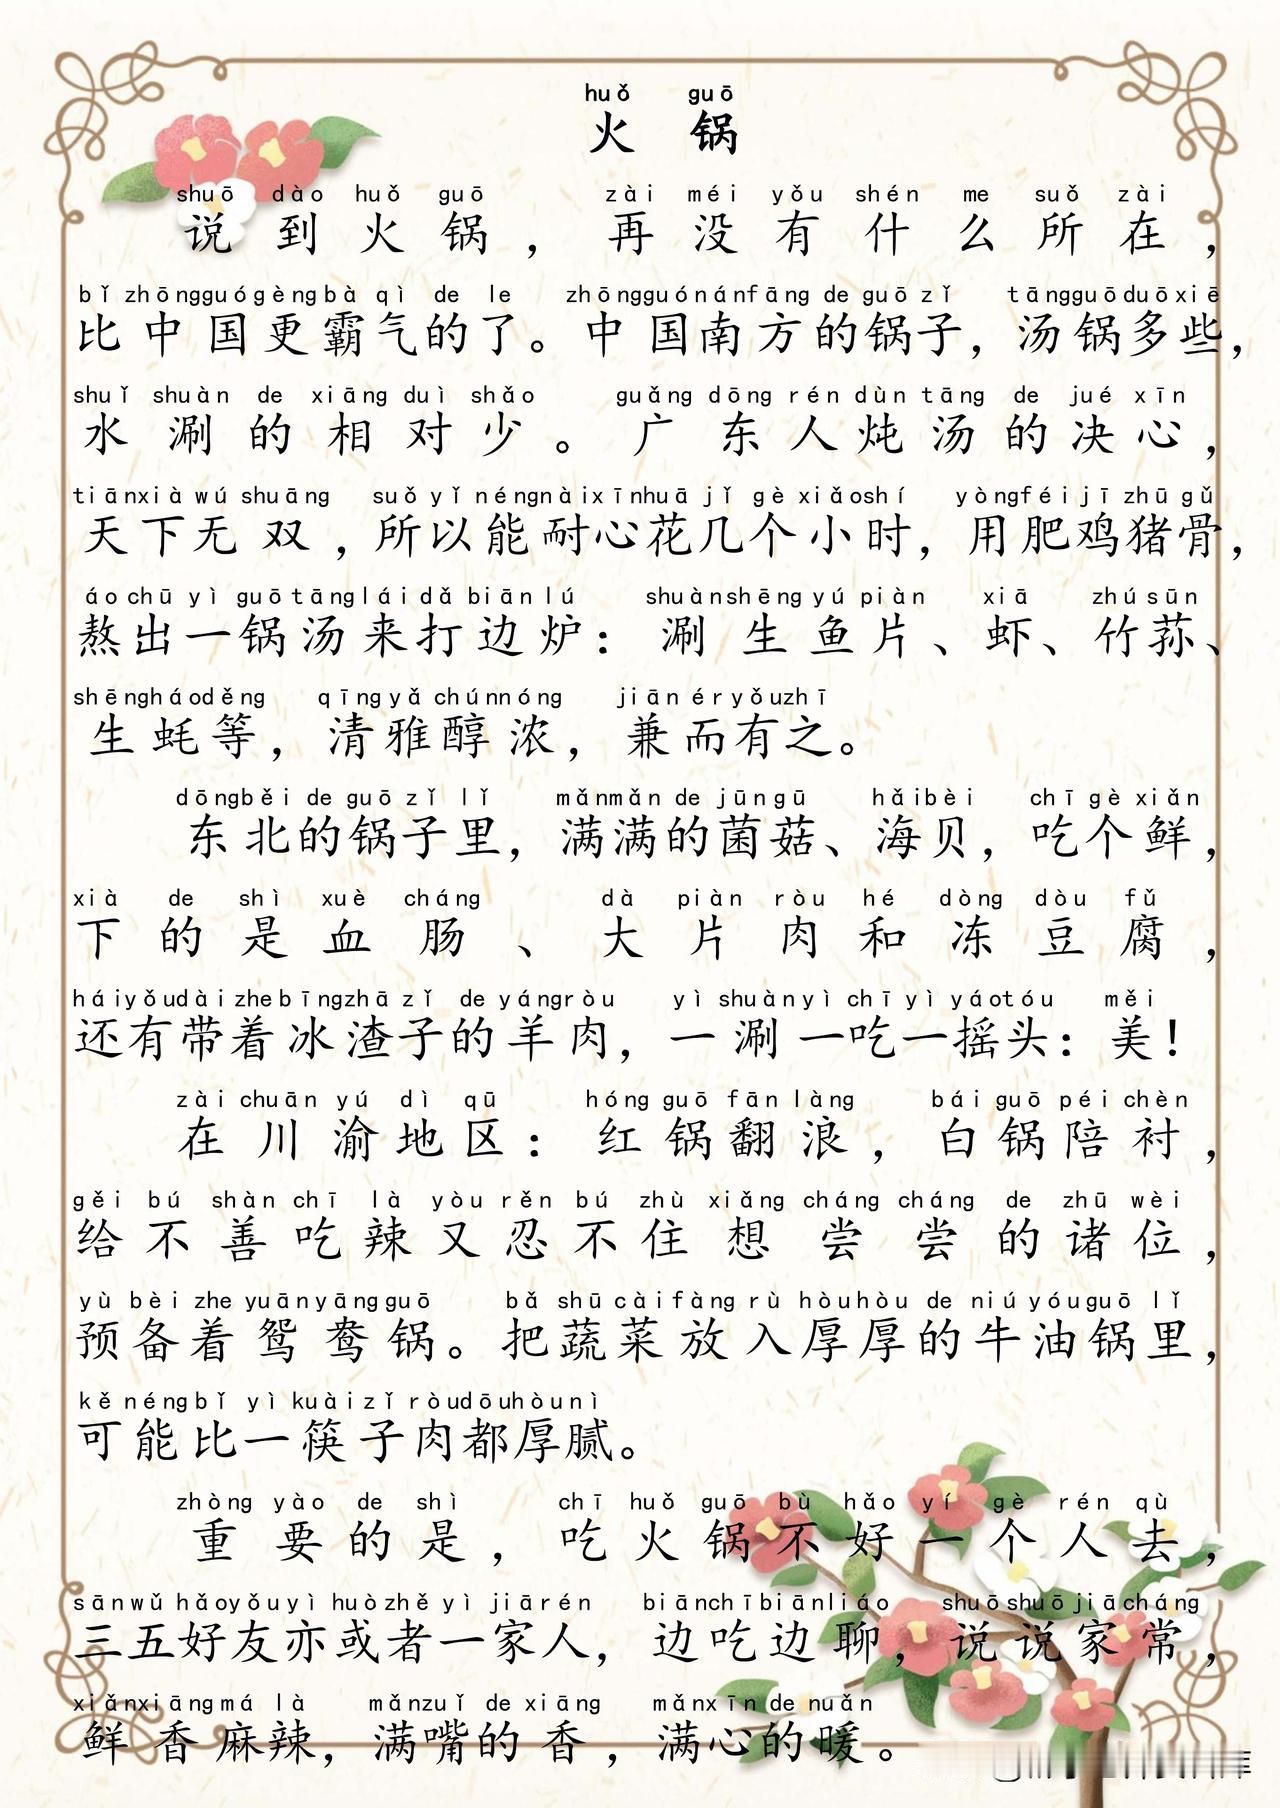 huǒ guō
火锅
shuō dào huǒ guō zài méi yǒu shén me suǒ zài
说到火锅，再没有什么所在，
bǐ zhōng guó gèng bà qì de le zhōng guó nán fāng de guō zǐ tāng guō duō xiē
比中国更霸气的了。中国南方的锅子，汤锅多些，
shuǐ shuàn de xiāng duì shǎo guǎng dōng rén dùn tāng de jué xīn
水涮的相对少。广东人炖汤的决心，
tiān xià wú shuāng suǒ yǐ néng nài xīn huā jǐ gè xiǎo shí yòng féi jī zhū gǔ
天下无双，所以能耐心花几个小时，用肥鸡猪骨，
áo chū yì guō tāng lái dǎ biān lú shuàn shēng yú piàn xiā zhú sūn
熬出一锅汤来打边炉：涮生鱼片、虾、竹荪、
shēng háo děng qīng yǎ chún nóng jiān ér yǒu zhī
生蚝等，清雅醇浓，兼而有之。
dōng běi de guō zǐ lǐ mǎn mǎn de jūn gū hǎi bèi chī gè xiǎn
东北的锅子里，满满的菌菇、海贝，吃个鲜，
xià de shì xuè cháng dà piàn ròu hé dòng dòu fǔ
下的是血肠、大片肉和冻豆腐，
hái yǒu dài zhe bīng zhā zǐ de yáng ròu yì shuàn yì chī yì yáo tóu měi
还有带着冰渣子的羊肉，一涮一吃一摇头：美！
zài chuān yú dì qū hóng guō fān làng bái guō péi chèn
在川渝地区：红锅翻浪，白锅陪衬，
gěi bú shàn chī là yòu rěn bú zhù xiǎng cháng cháng de zhū wèi
给不善吃辣又忍不住想尝尝的诸位，
yù bèi zhe yuān yāng guō bǎ shū cài fàng rù hòu hòu de niú yóu guō lǐ
预备着鸳鸯锅。把蔬菜放入厚厚的牛油锅里，
kě néng bǐ yì kuài zǐ ròu dōu hòu nì
可能比一筷子肉都厚腻。
zhòng yào de shì chī huǒ guō bù hǎo yí gè rén qù
重要的是，吃火锅不好一个人去，
sān wǔ hǎo yǒu yì huò zhě yì jiā rén biān chī biān liáo shuō shuō jiā cháng
三五好友亦或者一家人，边吃边聊，说说家常，
xiǎn xiāng má là mǎn zuǐ de xiāng mǎn xīn de nuǎn
鲜香麻辣，满嘴的香，满心的暖。